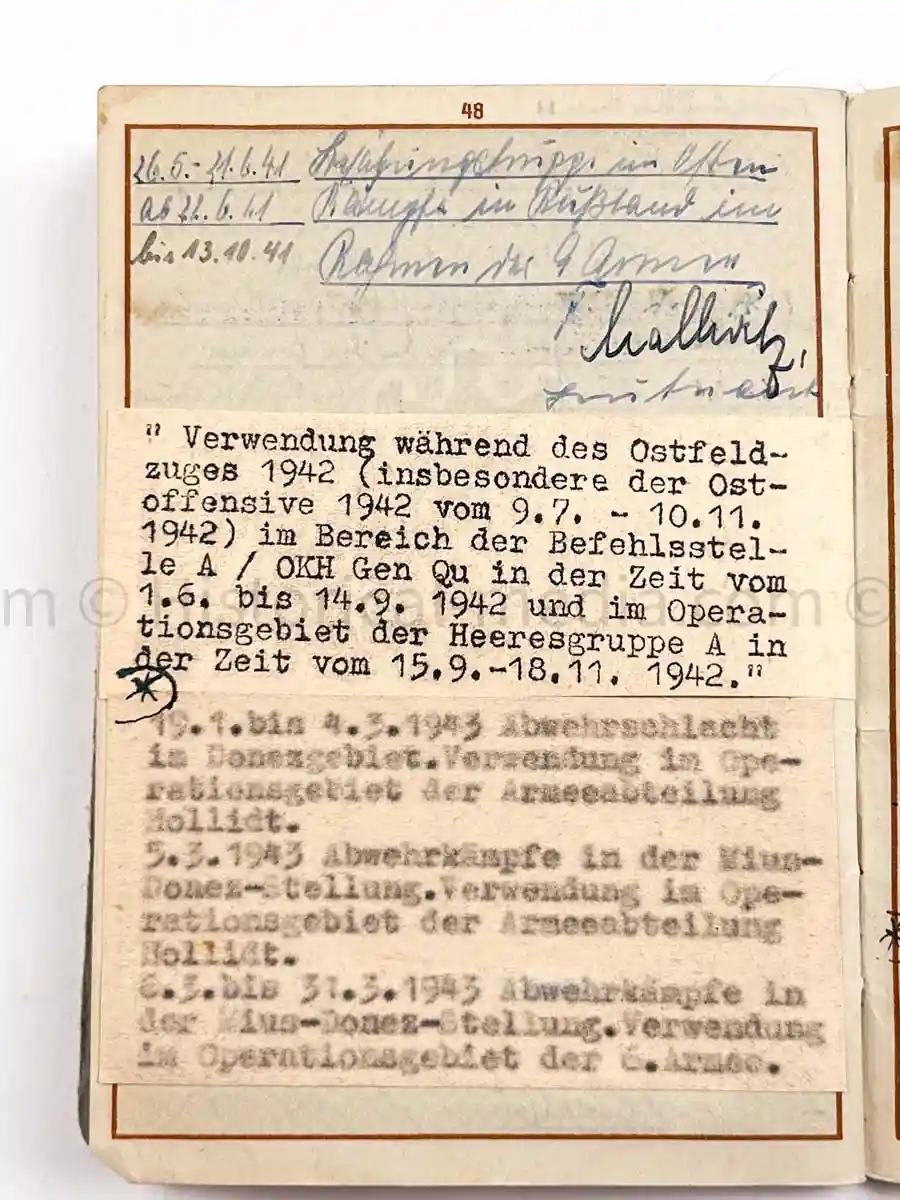 48
26.5.- 21.6.41 Besatzungstruppe im Osten
ab 22.6.41 Kämpfe in Rußland im
bis 13.10.41 Rahmen der 9 Armee
Leutnant
" Verwendung während des Ostfeld-
zuges 1942 (insbesondere der Ost-
offensive 1942 vom 9.7. - 10.11.
1942) im Bereich der Befehlsstel-
le A / OKH Gen Qu in der Zeit vom
1.6. bis 14.9. 1942 und im Opera-
tionsgebiet der Heeresgruppe A in
der Zeit vom 15.9.-18.11. 1942."
19.1.bis 4.3.1943 Abwehrschlacht
im Donezgebiet.Verwendung im Ope-
rationsgebiet der Armeeabteilung
Hollidt.
5.3.1943 Abwehrkämpfe in der Mius-
Donez-Stellung.Verwendung im Ope-
rationsgebiet der Armeeabteilung
Hollidt.
6.3.bis 31.3.1943 Abwehrkämpfe in
der Mius-Donez-Stellung.Verwendung
im Operationsgebiet der 6.Armee.